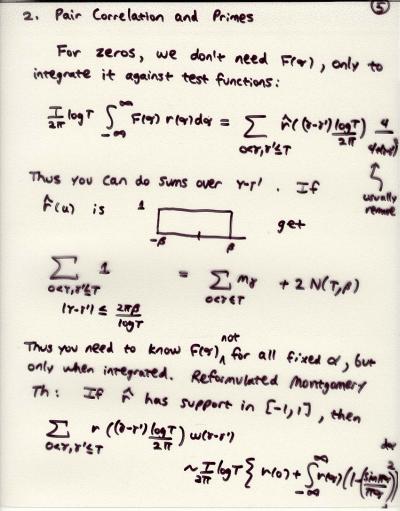 ⑤
2. Pair Correlation and Primes
For zeros, we don't need F(α), only to
integrate it against test functions:
T/2π log T ∫_{-∞}^{∞} F(α) r(α) dα = Σ_{0<γ,γ'≤T} r̂((γ-γ') log T/2π) 4/(4+(γ-γ')²)
usually
remove
Thus you can do sums over γ-γ'. If
r̂(u) is 1 -β β get
Σ_{0<γ,γ'≤T, |γ-γ'| ≤ 2πβ/log T} 1 = Σ_{0<γ≤T} m_γ + 2 N(T,β)
not
Thus you need to know F(α) ∧ for all fixed α, but
only when integrated. Reformulated Montgomery
Th: If r̂ has support in [-1,1], then
Σ_{0<γ,γ'≤T} r((γ-γ') log T/2π) w(γ-γ')
~ T/2π log T { r(0) + ∫_{-∞}^{∞} r(α) (1-(sin πα/πα)²) dα